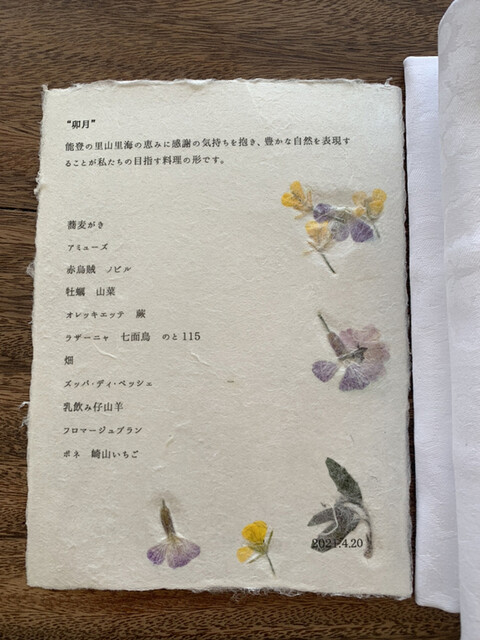 “卯月”
能登の里山里海の恵みに感謝の気持ちを抱き、豊かな自然を表現す
ることが私たちの目指す料理の形です。
蕎麦がき
アミューズ
赤烏賊　ノビル
牡蠣　山菜
オレッキエッテ　蕨
ラザーニャ　七面鳥　のと115
畑
ズッパ・ディ・ペッシェ
乳飲み仔山羊
フロマージュブラン
ボネ　崎山いちご
2021.4.20